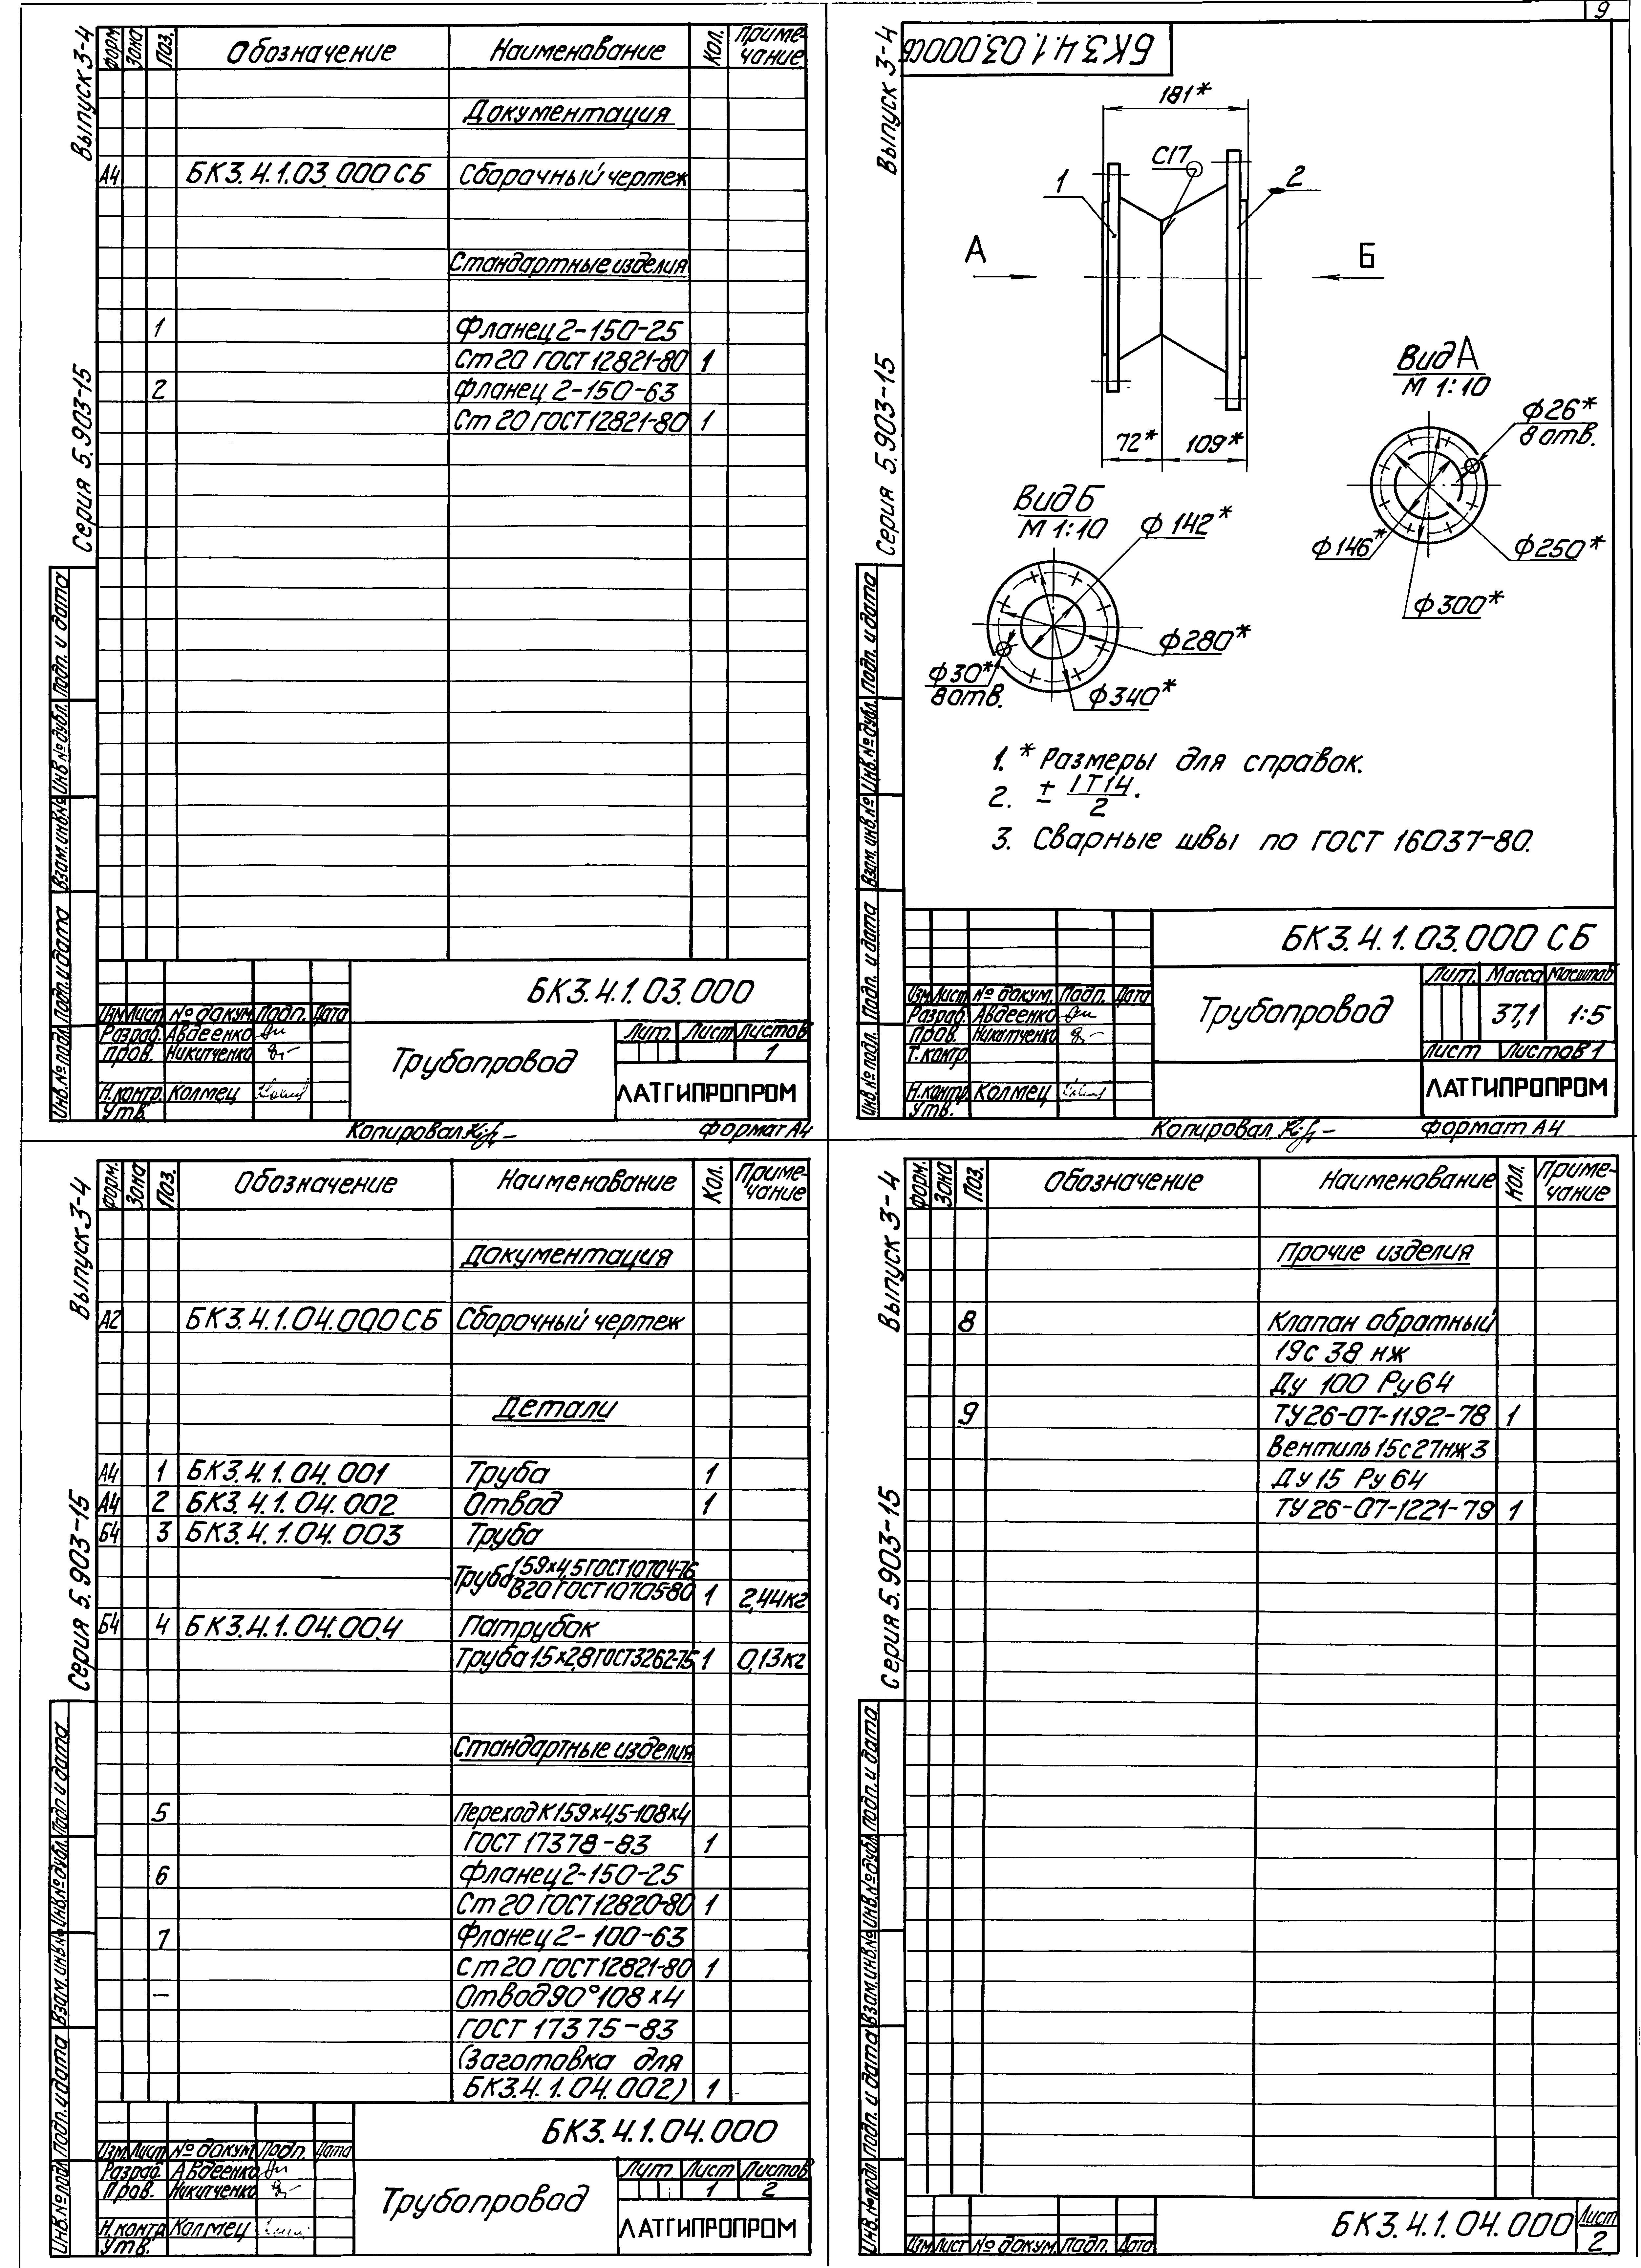 9
Выпуск 3-4
Серия 5.903-15
Форм. Зона Поз. Обозначение Наименование Кол. Примечание
Документация
А4 БК3.4.1.03.000 СБ Сборочный чертеж
Стандартные изделия
1 Фланец 2-150-25
Ст 20 ГОСТ 12821-80 1
2 Фланец 2-150-63
Ст 20 ГОСТ 12821-80 1
Инв.№ подл. Подп. и дата Взам. инв.№ Инв.№ дубл. Подп. и дата
БК3.4.1.03.000
Изм Лист № докум. Подп. Дата
Разраб. Авдеенко
Пров. Никитченко
Н.контр. Колмец
Утв.
Трубопровод
Лит. Лист Листов
1
ЛАТГИПРОПРОМ
Копировал Формат А4
Выпуск 3-4
Серия 5.903-15
БК3.4.1.03.000СБ
181*
С17
1
2
А
Б
72* 109*
Вид А
М 1:10
ф26*
8 отв.
ф146*
ф250*
ф300*
Вид Б
М 1:10
ф142*
ф280*
ф30*
8 отв.
ф340*
1. * Размеры для справок.
2. ± IT14/2.
3. Сварные швы по ГОСТ 16037-80.
Инв.№ подл. Подп. и дата Взам. инв.№ Инв.№ дубл. Подп. и дата
БК3.4.1.03.000 СБ
Изм Лист № докум. Подп. Дата
Разраб. Авдеенко
Пров. Никитченко
Т.контр.
Н.контр. Колмец
Утв.
Трубопровод
Лит. Масса Масштаб
37,1 1:5
Лист Листов 1
ЛАТГИПРОПРОМ
Копировал Формат А4
Выпуск 3-4
Серия 5.903-15
Форм. Зона Поз. Обозначение Наименование Кол. Примечание
Документация
А2 БК3.4.1.04.000 СБ Сборочный чертеж
Детали
А4 1 БК3.4.1.04.001 Труба 1
А4 2 БК3.4.1.04.002 Отвод 1
Б4 3 БК3.4.1.04.003 Труба
Труба 159х4,5 ГОСТ 10704-76
В20 ГОСТ 10705-80 1 2,44кг
Б4 4 БК3.4.1.04.004 Патрубок
Труба 15х2,8 ГОСТ 3262-75 1 0,13кг
Стандартные изделия
5 Переход К 159х4,5-108х4
ГОСТ 17378-83 1
6 Фланец 2-150-25
Ст 20 ГОСТ 12820-80 1
7 Фланец 2-100-63
Ст 20 ГОСТ 12821-80 1
— Отвод 90° 108х4
ГОСТ 17375-83
(Заготовка для
БК3.4.1.04.002) 1
Инв.№ подл. Подп. и дата Взам. инв.№ Инв.№ дубл. Подп. и дата
БК3.4.1.04.000
Изм Лист № докум. Подп. Дата
Разраб. Авдеенко
Пров. Никитченко
Н.контр. Колмец
Утв.
Трубопровод
Лит Лист Листов
1 2
ЛАТГИПРОПРОМ
Выпуск 3-4
Серия 5.903-15
Форм. Зона Поз. Обозначение Наименование Кол. Примечание
Прочие изделия
8 Клапан обратный
19с 38 нж
Ду 100 Ру 64
9 ТУ 26-07-1192-78 1
Вентиль 15с27нж3
Ду 15 Ру 64
ТУ 26-07-1221-79 1
Инв.№ подл. Подп. и дата Взам. инв.№ Инв.№ дубл. Подп. и дата
Изм Лист № докум. Подп. Дата
БК3.4.1.04.000
Лист
2